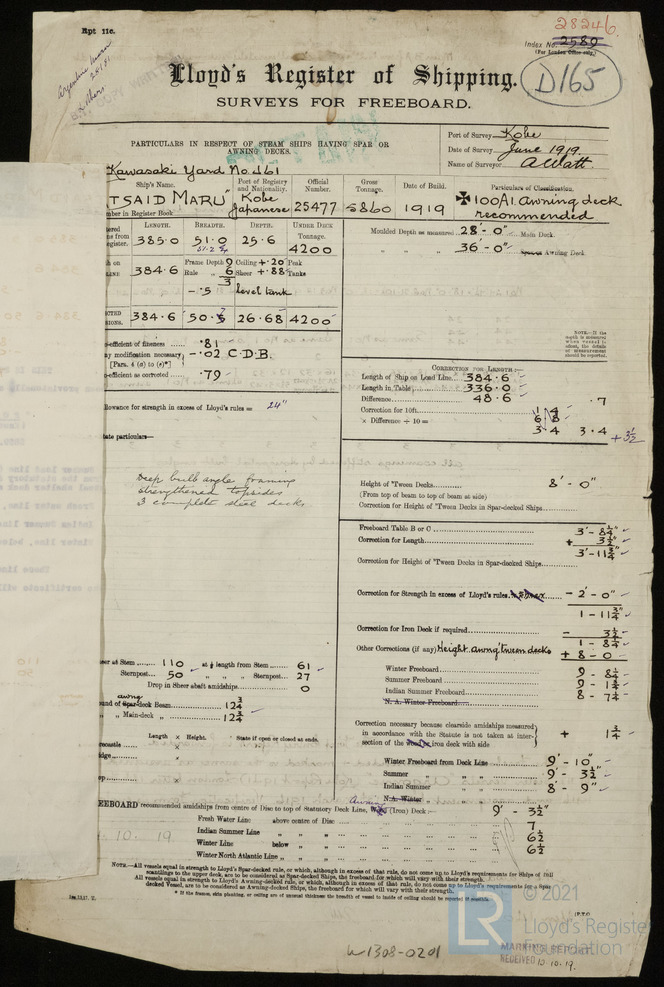 Rpt 11c.
28246
Index No. 2589
(For London Office only.)
D165
Lloyd's Register of Shipping.
SURVEYS FOR FREEBOARD.
PARTICULARS IN RESPECT OF STEAM SHIPS HAVING SPAR OR
AWNING DECKS.
Port of Survey Kobe
Date of Survey June 1919.
Name of Surveyor A Watt.
Kawasaki Yard No. 461
Ship's Name. Port of Registry and Nationality. Official Number. Gross Tonnage. Date of Build. Particulars of Classification.
TSAID MARU" Kobe Japanese 25477 5860 1919 ✠100A1. Awning deck recommended
Number in Register Book
LENGTH. BREADTH. DEPTH. UNDER DECK Tonnage.
385.0 51.0 25.6 4200
384.6 Frame Depth 9 Ceiling +.20 Peak
Rule " 6 Sheer +.88 Tanks
3
-.5 level tank
384.6 50.5 26.68 4200
Moulded Depth as measured 28'-0" Main Deck.
" " " 36'-0" Awning Deck
NOTE.—If the depth is measured when vessel is afloat, the details of measurement should be reported.
efficient of fineness .81
y modification necessary -.02 C.D.B.
[Para. 4 (a) to (e)*]
efficient as corrected .79
CORRECTION FOR LENGTH
Length of Ship on Load Line 384.6
Length in Table 336.0
Difference 48.6
Correction for 10ft.
× Difference ÷ 10 =
.7
3.4 3.4 + 3½
llowance for strength in excess of Lloyd's rules = 24"
tate particulars—
Deep bulb angle framing
strengthened topsides
3 complete steel decks
Height of 'Tween Decks 8'-0"
(From top of beam to top of beam at side)
Correction for Height of 'Tween Decks in Spar-decked Ships
Freeboard Table B or C 3'-8¼"
Correction for Length + 3½"
3'-11¾"
Correction for Height of 'Tween Decks in Spar-decked Ships
Correction for Strength in excess of Lloyd's rules -2'-0"
1-11¾"
Correction for Iron Deck if required - 3½
1-8¼
Other Corrections (if any) Height. awng' tween decks + 8-0
Winter Freeboard 9-8¼
Summer Freeboard 9-1¾
Indian Summer Freeboard 8-7¼
N. A. Winter Freeboard
Correction necessary because clearside amidships measured
in accordance with the Statute is not taken at intersection of the iron deck with side + 1¾
Winter Freeboard from Deck Line 9'-10"
Summer " " " " 9'-3½"
Indian Summer " " 8'-9"
N. A. Winter " "
er at Stem 110 at ⅛ length from Stem 61
Sternpost 50 " " " Sternpost 27
Drop in Sheer abaft amidships 0
und of awng Spar-deck Beam 12¾
" " Main-deck " 12¾
Length × Height. State if open or closed at ends.
EEBOARD recommended amidships from centre of Disc to top of Statutory Deck Line, Awning (Iron) Deck:— 9'-3½"
Fresh Water Line above centre of Disc 7
Indian Summer Line " " " 6½
Winter Line below " " 6½
Winter North Atlantic Line " " "
10. 19
NOTE.—All vessels equal in strength to Lloyd's Spar-decked rule, or which, although in excess of that rule, do not come up to Lloyd's requirements for Ships of full
scantlings to the upper deck, are to be considered as Spar-decked Ships, the freeboard for which will vary with their strength.
All vessels equal in strength to Lloyd's Awning-decked rule, or which, although in excess of that rule, do not come up to Lloyd's requirements for a Spar
decked Vessel, are to be considered as Awning-decked Ships, the freeboard for which will vary with their strength.
* If the frames, skin planking, or ceiling are of unusual thickness the breadth of vessel to inside of ceiling should be reported if possible.
(P.T.O.
W1308-0201
MARKING REPORT
RECEIVED 10.10.19.
LR © 2021
Lloyd's Register
Foundation